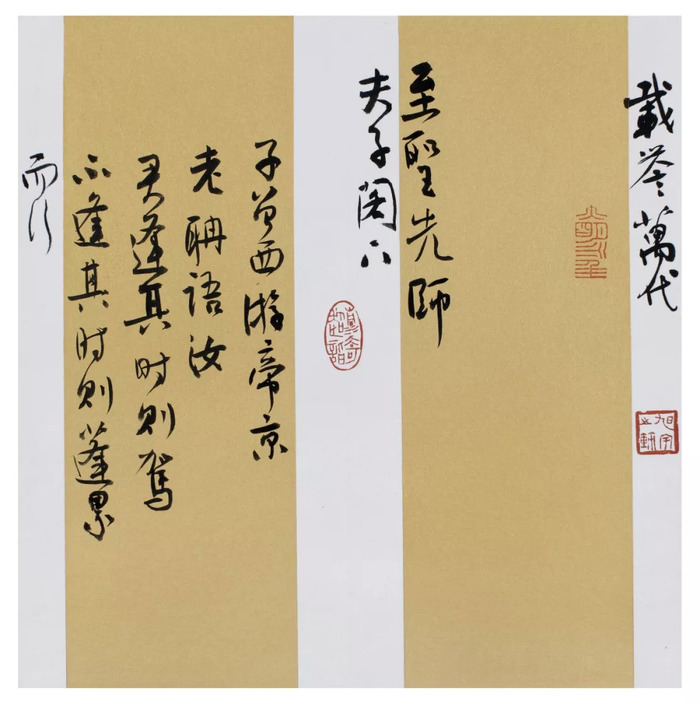 載萬代
至聖先師
夫子閣下
子曾西游帝京
老聃語汝
君逢其时则駕
不逢其时则蓬累
而行